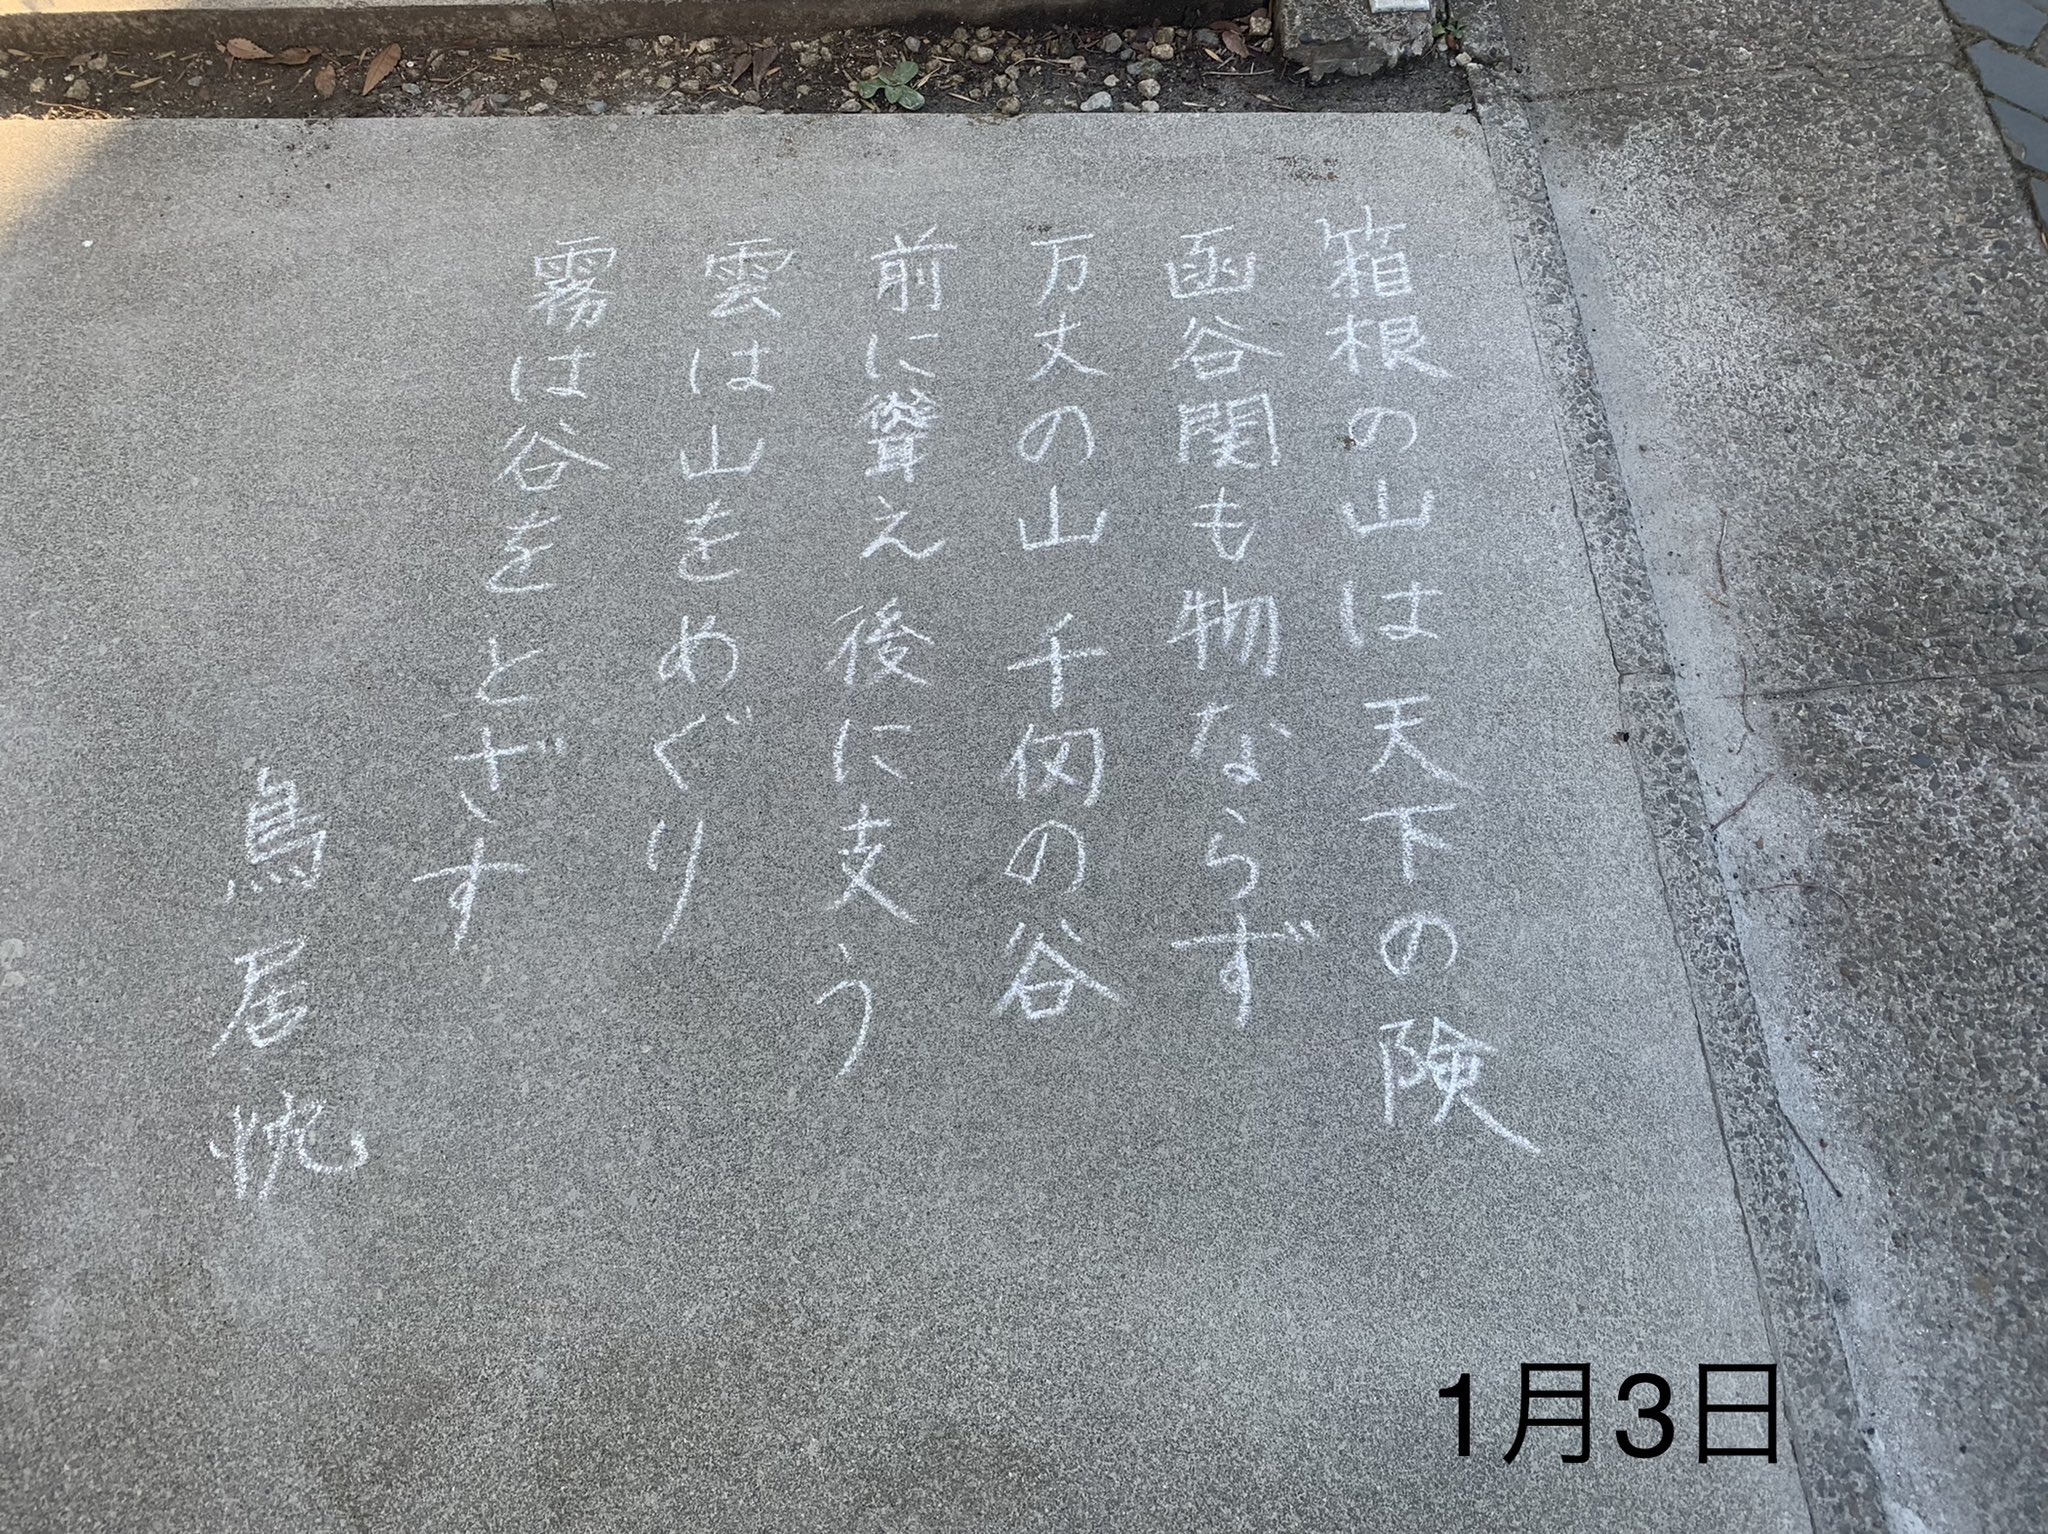 箱根の山は 天下の険
函谷関も物ならず
万丈の山 千仞の谷
前に聳え 後に支う
雲は山をめぐり
霧は谷を とざす
鳥居忱
1月3日